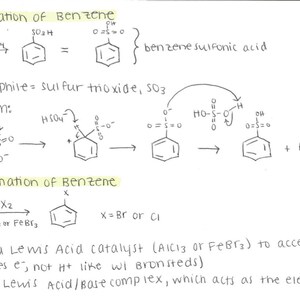 ation of Benzene
SO3H
OH
O=S=O
= benzene sulfonic acid
phile = sulfur trioxide, SO3
n:
HSO4⁻
HO-S-O H
O=S=O
OH
O=S=O
+
nation of Benzene
X2
or FeBr3
X
X = Br or Cl
a Lewis Acid catalyst (AlCl3 or FeBr3) to acce
es e⁻, not H+ like w/ Bronsteds)
Lewis Acid/Base complex, which acts as the ele